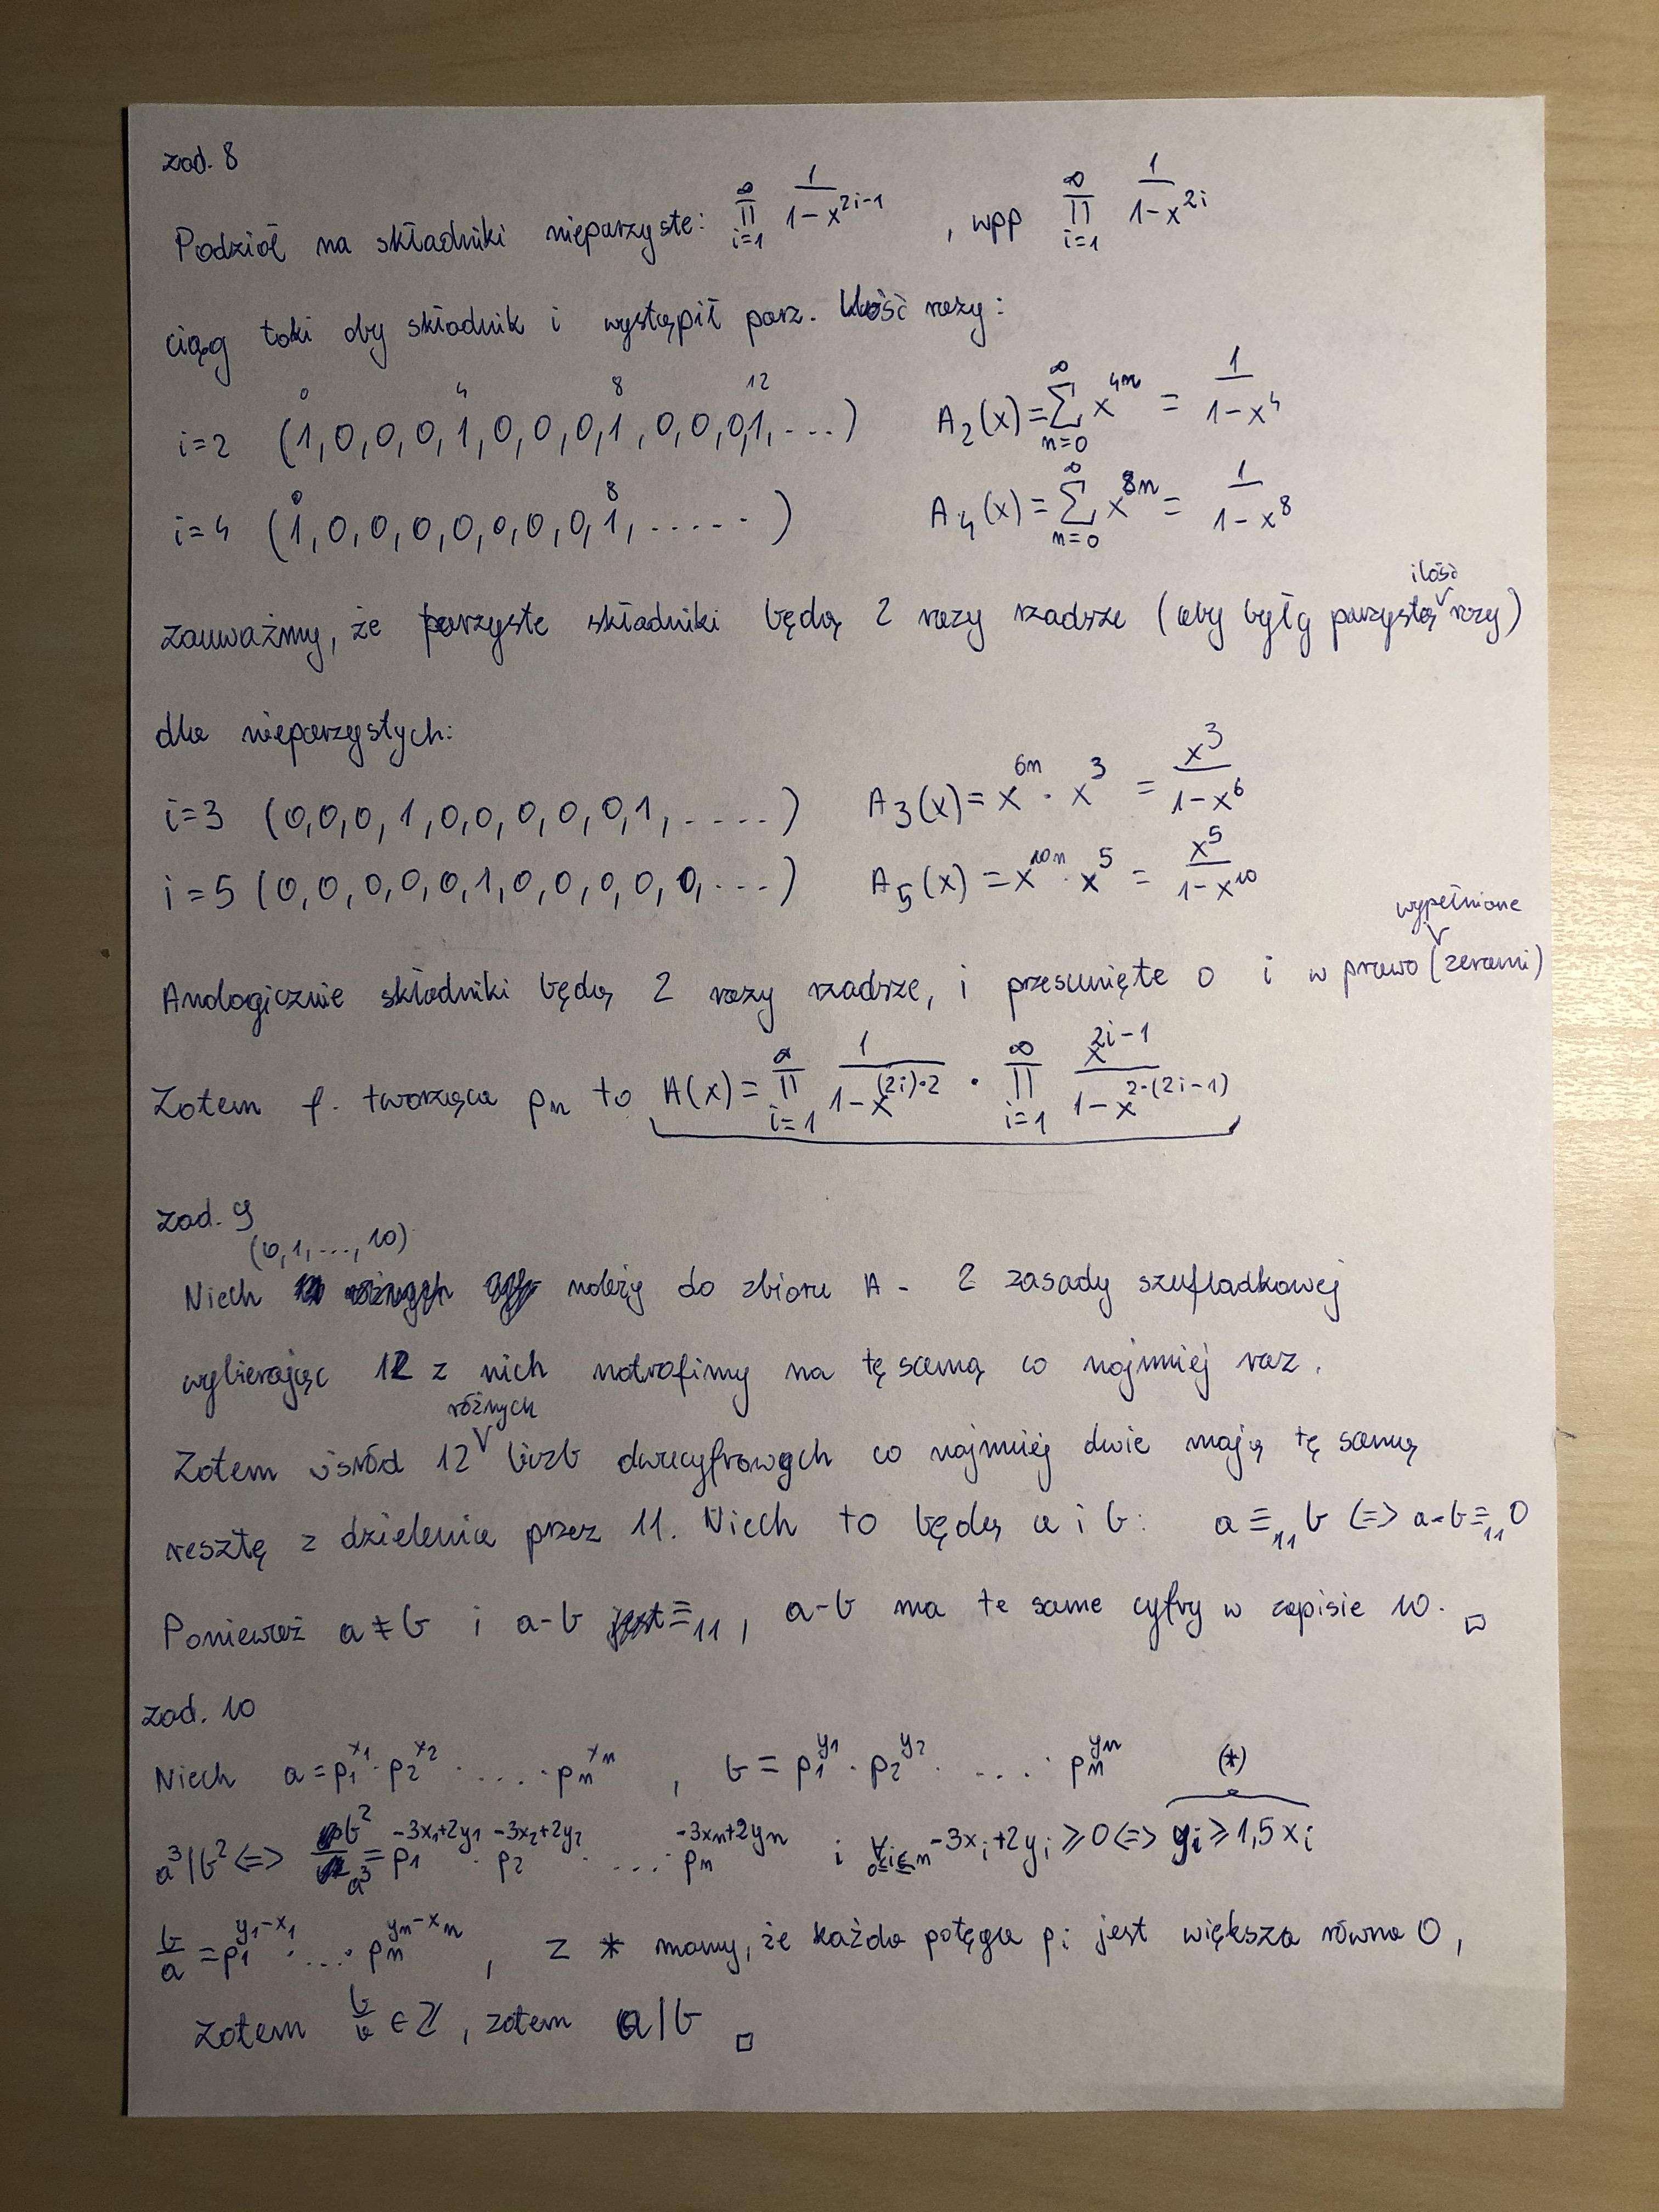 zad. 8
Podział na składniki nieparzyste: ∞∏i=1 1/(1-x^(2i-1)) , wpp ∞∏i=1 1/(1-x^(2i))
ciąg taki aby składnik i wystąpił parz. ilość razy:
0 4 8 12
i=2 (1,0,0,0,1,0,0,0,1,0,0,0,1,...) A₂(x)=∞∑n=0 x^(4n) = 1/(1-x⁴)
0 8
i=4 (1,0,0,0,0,0,0,0,1,.....) A₄(x)=∞∑n=0 x^(8n) = 1/(1-x⁸)
zauważmy, że parzyste składniki będą 2 razy rzadsze (aby były parzystą ilość razy)
dla nieparzystych:
i=3 (0,0,0,1,0,0,0,0,0,1,....) A₃(x)= x^(6n) · x³ = x³/(1-x⁶)
i=5 (0,0,0,0,0,1,0,0,0,0,0,...) A₅(x) = x^(10n) · x⁵ = x⁵/(1-x¹⁰)
Analogicznie składniki będą 2 razy rzadsze, i przesunięte o i w prawo (wypełnione zerami)
Zatem f. tworząca pₙ to A(x)= ∞∏i=1 1/(1-x^((2i)·2)) · ∞∏i=1 x^(2i-1)/(1-x^(2·(2i-1)))
zad. 9
(0,1,...,10)
Niech należy do zbioru A - Z zasady szufladkowej
wybierając 12 z nich natrafimy na tę samą co najmniej raz.
Zatem wśród 12 różnych liczb dwucyfrowych co najmniej dwie mają tę samą
resztę z dzielenia przez 11. Niech to będą a i b: a ≡₁₁ b <=> a-b ≡₁₁ 0
Ponieważ a ≠ b i a-b ≡₁₁, a-b ma te same cyfry w zapisie 10. □
zad. 10
Niech a = p₁^x₁ · p₂^x₂ · .... · pₙ^xₙ , b = p₁^y₁ · p₂^y₂ · ... · pₙ^yₙ (*)
a³|b² <=> b²/a³ = p₁^(-3x₁+2y₁) · p₂^(-3x₂+2y₂) · ... · pₙ^(-3xₙ+2yₙ) i ∀0≤i≤n -3xᵢ+2yᵢ ≥ 0 <=> yᵢ ≥ 1,5xᵢ
b/a = p₁^(y₁-x₁) · ... · pₙ^(yₙ-xₙ) , z * mamy, że każda potęga pᵢ jest większa równa 0,
Zatem b/a ∈ ℤ, zatem a|b □